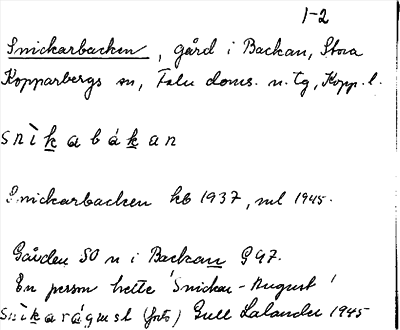 1-2
Snickarbacken, gård i Backan, Stora
Kopparbergs sn, Falu doms. n. tg, Kopp. l.
snìkabákan
Snickarbacken kb 1937, ml 1945.
Gården SO n i Backan G 97.
En person hette 'Snickar-August'
snìkarágust (fots) Gull Lalander 1945